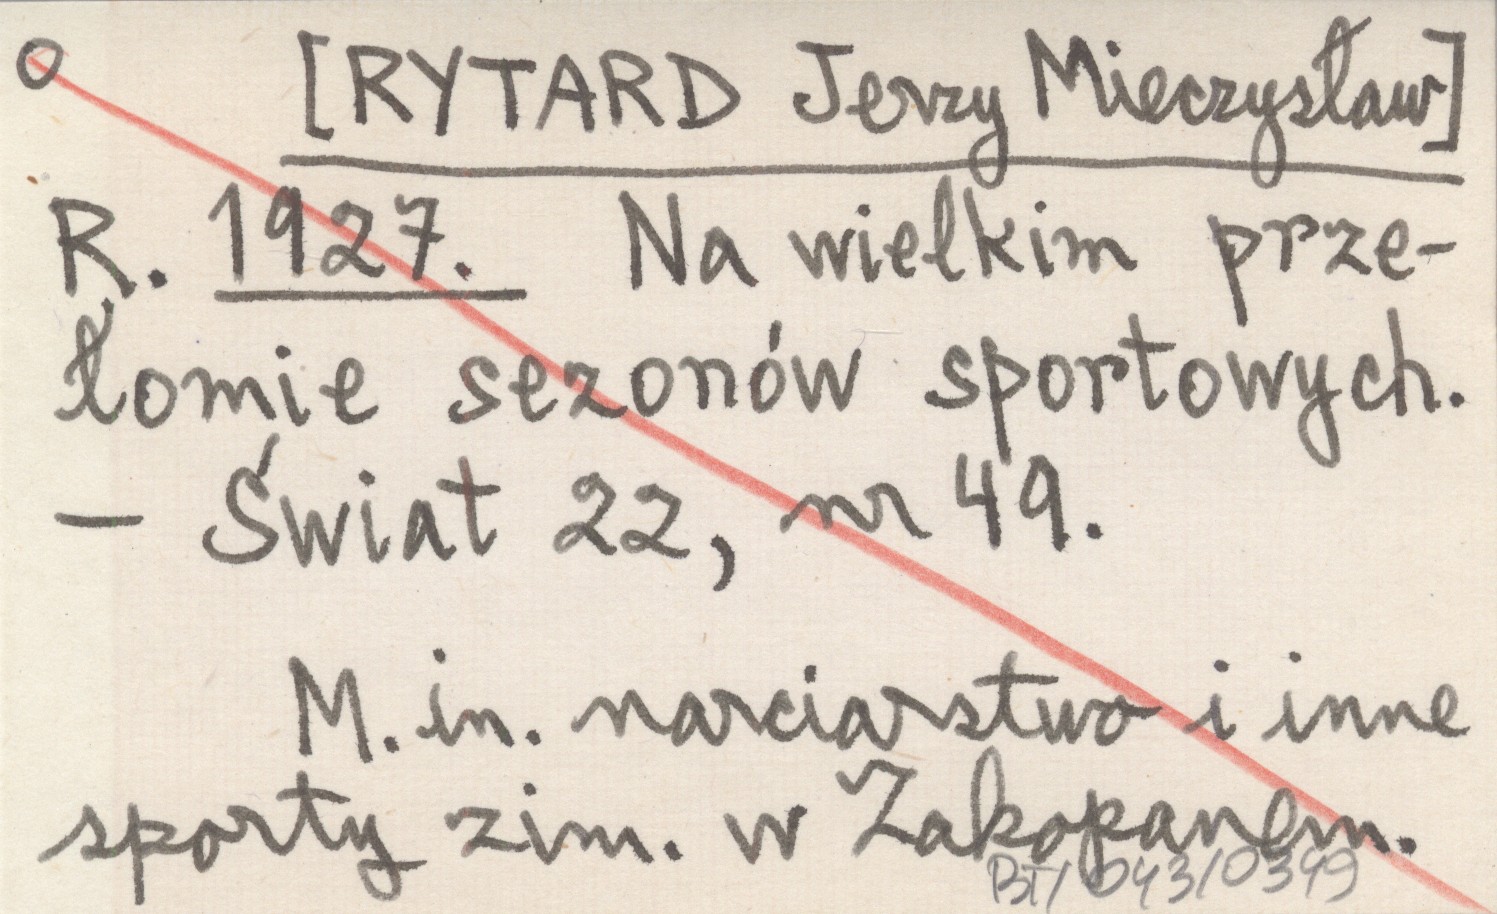 [RYTARD Jerzy Mieczysław]
R. 1927. Na wielkim prze-
łomie sezonów sportowych.
— Świat 22, nr 49.
M. in. narciarstwo i inne
sporty zim. w Zakopanem.
BT/043/0399